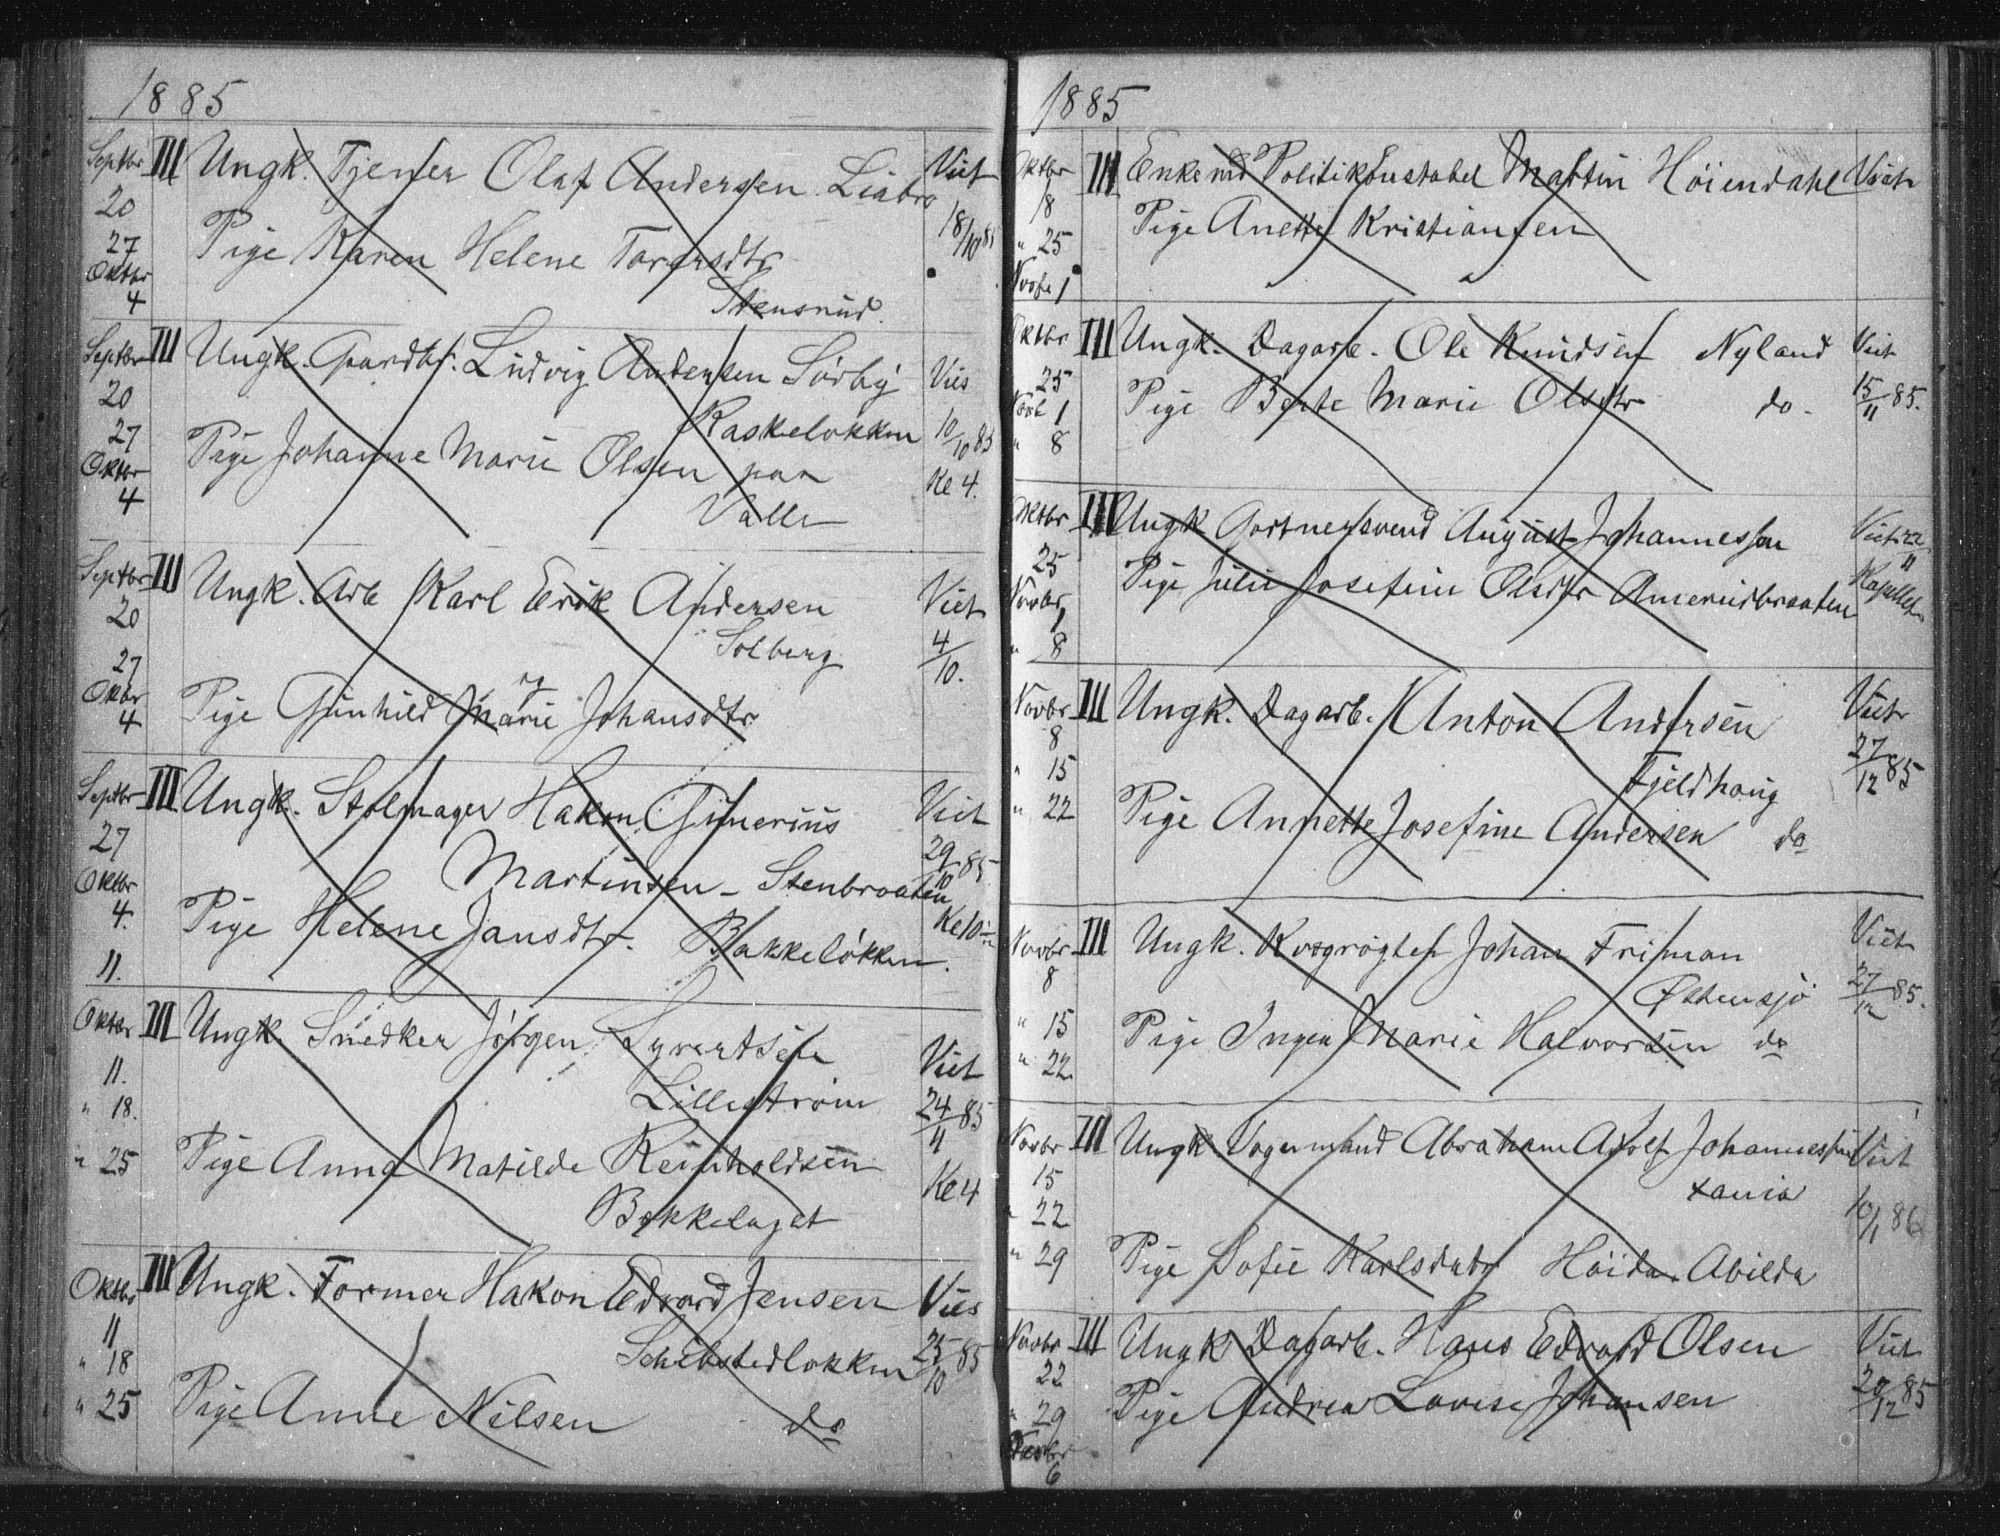 1885
Septbr III Ungk. Tjener Olaf Andersen Liabro Viet
20 18/10 85
27 Pige Karen Helene Torersdtr
Oktbr
4 Stensrud
Septbr III Ungk. Gaardbr. Ludvig Andersen Sörby Vies
20 Raskeløkken 10/10 85
27 Pige Johanne Marie Olsen paa Ke 4.
Oktbr
4 Valle
Septbr III Ungk. Arb Karl Erik Andersen Viet
20 Solberg 4/10.
27
Oktbr Pige Gunhild Marie Johansdtr
4
Septbr III Ungk. Stolmager Hakon Gunerius Viet
27 Martinsen - Stenbraaten 29/10 85
Oktbr Pige Helene Jansdtr. Bakkeløkken. Ke 10
4.
11.
Oktbr III Ungk. Snedker Jörgen Syvertsen Viet
11. Lilleström 24/11 85
" 18.
" 25 Pige Anna Matilde Reinholdsen Ke 4
Bækkelaget
Oktbr III Ungk. Former Hakon Edvard Jensen Vies
11 Schibstedløkken 25/10 85
" 18
" 25 Pige Anne Nilsen do
1885
Oktbr III Enkemd Politikonstabel Martin Höiendahl Viet
18 Pige Anette Kristiansen
" 25
Novbr 1
Oktbr III Ungk. Dagarb. Ole Knudsen Nyland Viet
25 Pige Berte Marie Olsdtr do. 15/11 85.
Novb 1
" 8
Oktbr III Ungk Gartnersvend August Johannessen Viet 22/11
25 Pige Julie Josefine Olsdtr Amerudbraaten Kapellet
Novbr 1
" 8
Novbr III Ungk. Dagarb. Anton Andersen Viet
8 Fjeldhaug 27/12 85
" 15
" 22 Pige Annette Josefine Andersen do
Novbr III Ungk. Kvægrögter Johan Friman Viet
8 Østensjö 27/12 85.
" 15 Pige Ingen Marie Halvorsen do
" 22
Novbr III Ungk Vognmand Abraham Adolf Johannessen Viet
15 xania 10/1 86
" 22
" 29 Pige Sofie Karlsdatr Höida Abilda
Novbr III Ungk Dagarb. Hans Edvard Olsen Viet
22 Pige Andrea Lovise Johansen 20/12 85
" 29
6